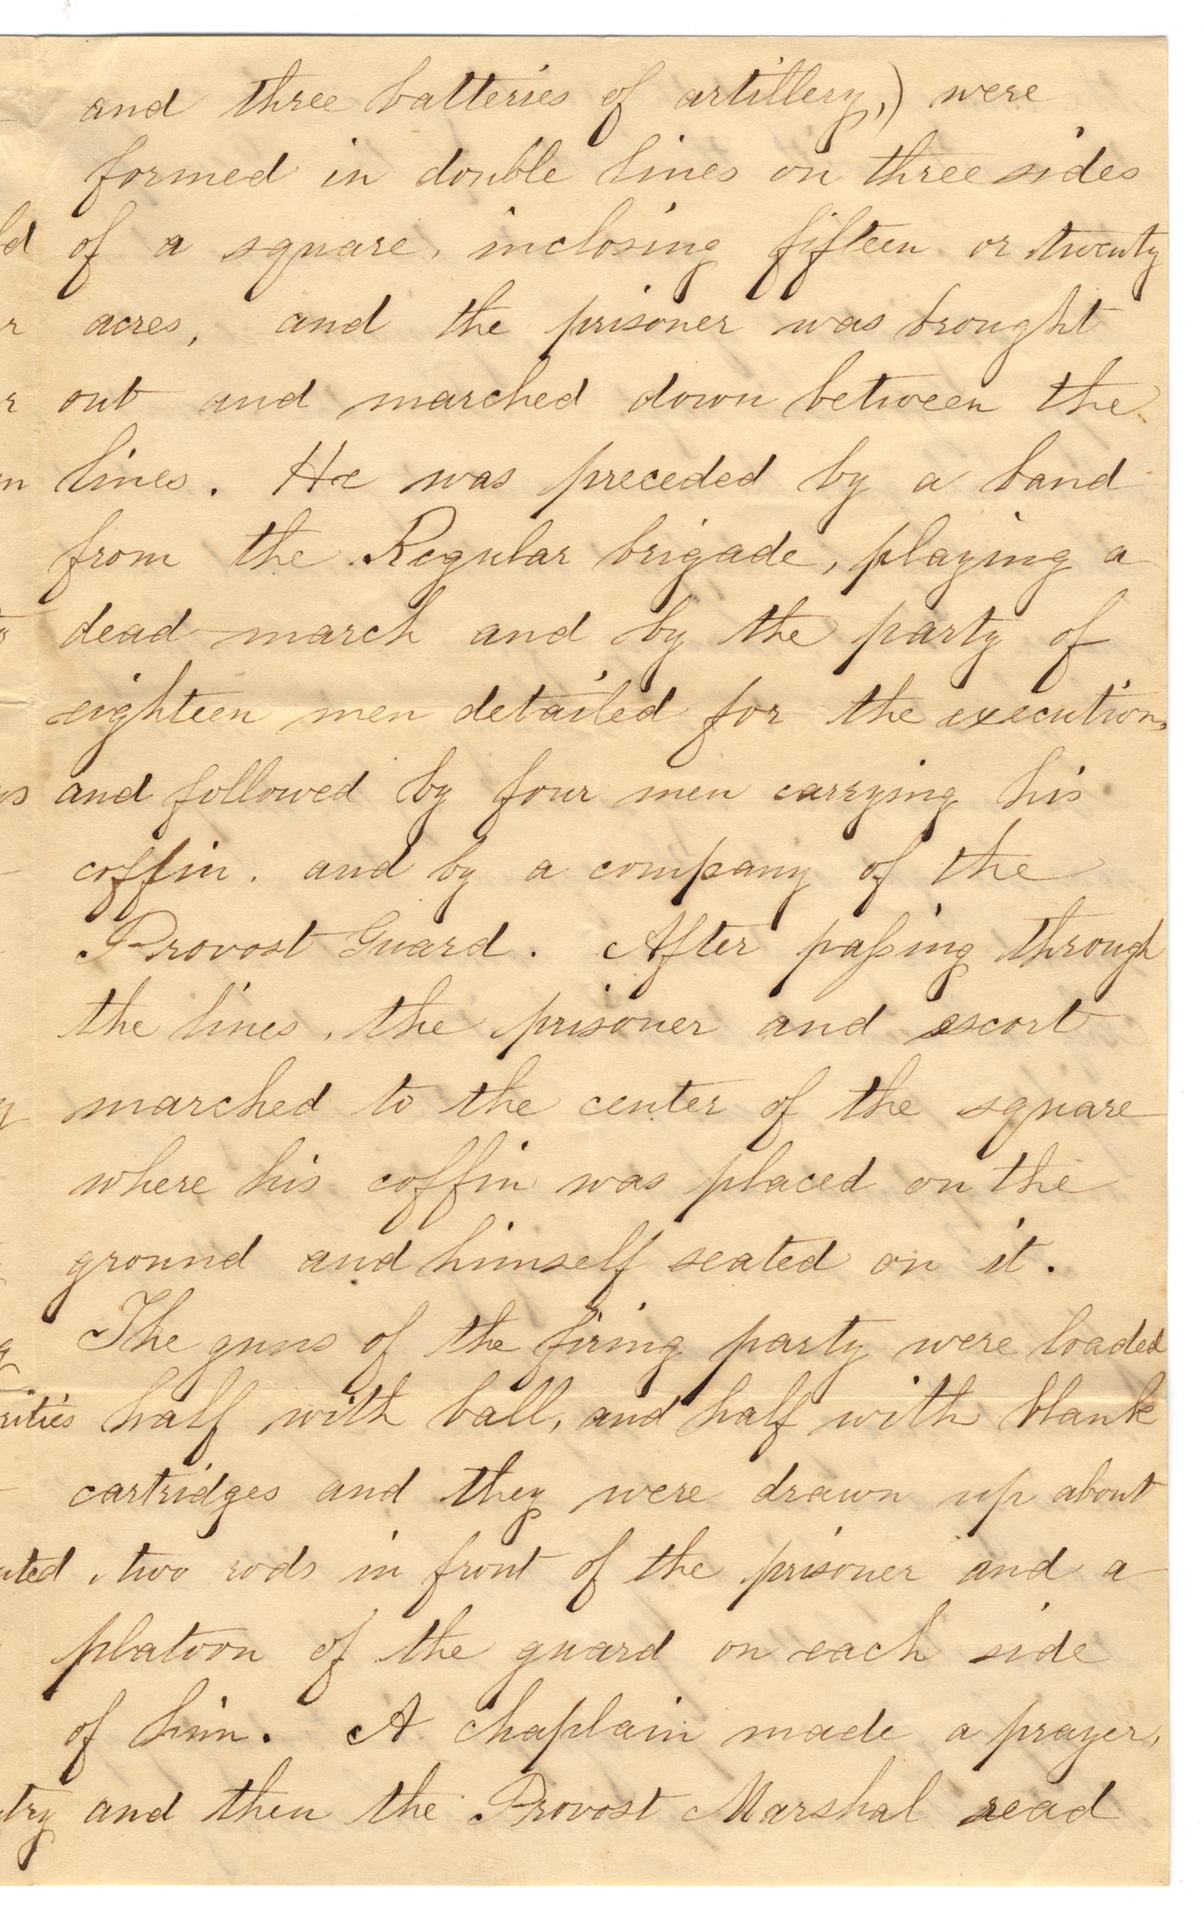 and three batteries of artillery,) were
formed in double lines on three sides
of a square, inclosing fifteen or twenty
acres, and the prisoner was brought
out and marched down between the
lines. He was preceded by a band
from the Regular brigade, playing a
dead march and by the party of
eighteen men detailed for the execution,
and followed by four men carrying his
coffin, and by a company of the
Provost Guard. After paſsing through
the lines, the prisoner and escort
marched to the center of the square
where his coffin was placed on the
ground and himself seated on it.
The guns of the firing party were loaded
half with ball, and half with blank
cartridges and they were drawn up about
two rods in front of the prisoner and a
platoon of the guard on each side
of him. A chaplain made a prayer,
and then the Provost Marshal read